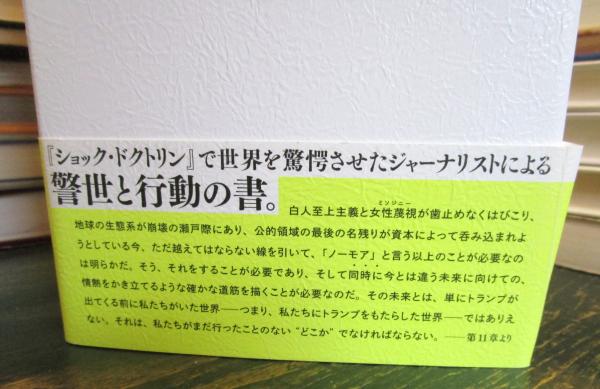 『ショック・ドクトリン』で世界を驚愕させたジャーナリストによる
警世と行動の書。
ミソジニー
白人至上主義と女性蔑視が歯止めなくはびこり、
地球の生態系が崩壊の瀬戸際にあり、公的領域の最後の名残りが資本によって呑み込まれよ
うとしている今、ただ越えてはならない線を引いて、「ノーモア」と言う以上のことが必要なの
は明らかだ。そう、それをすることが必要であり、そして同時に今とは違う未来に向けての、
情熱をかき立てるような確かな道筋を描くことが必要なのだ。その未来とは、単にトランプが
出てくる前に私たちがいた世界――つまり、私たちにトランプをもたらした世界――ではありえ
ない。それは、私たちがまだ行ったことのない“どこか”でなければならない。――第11章より